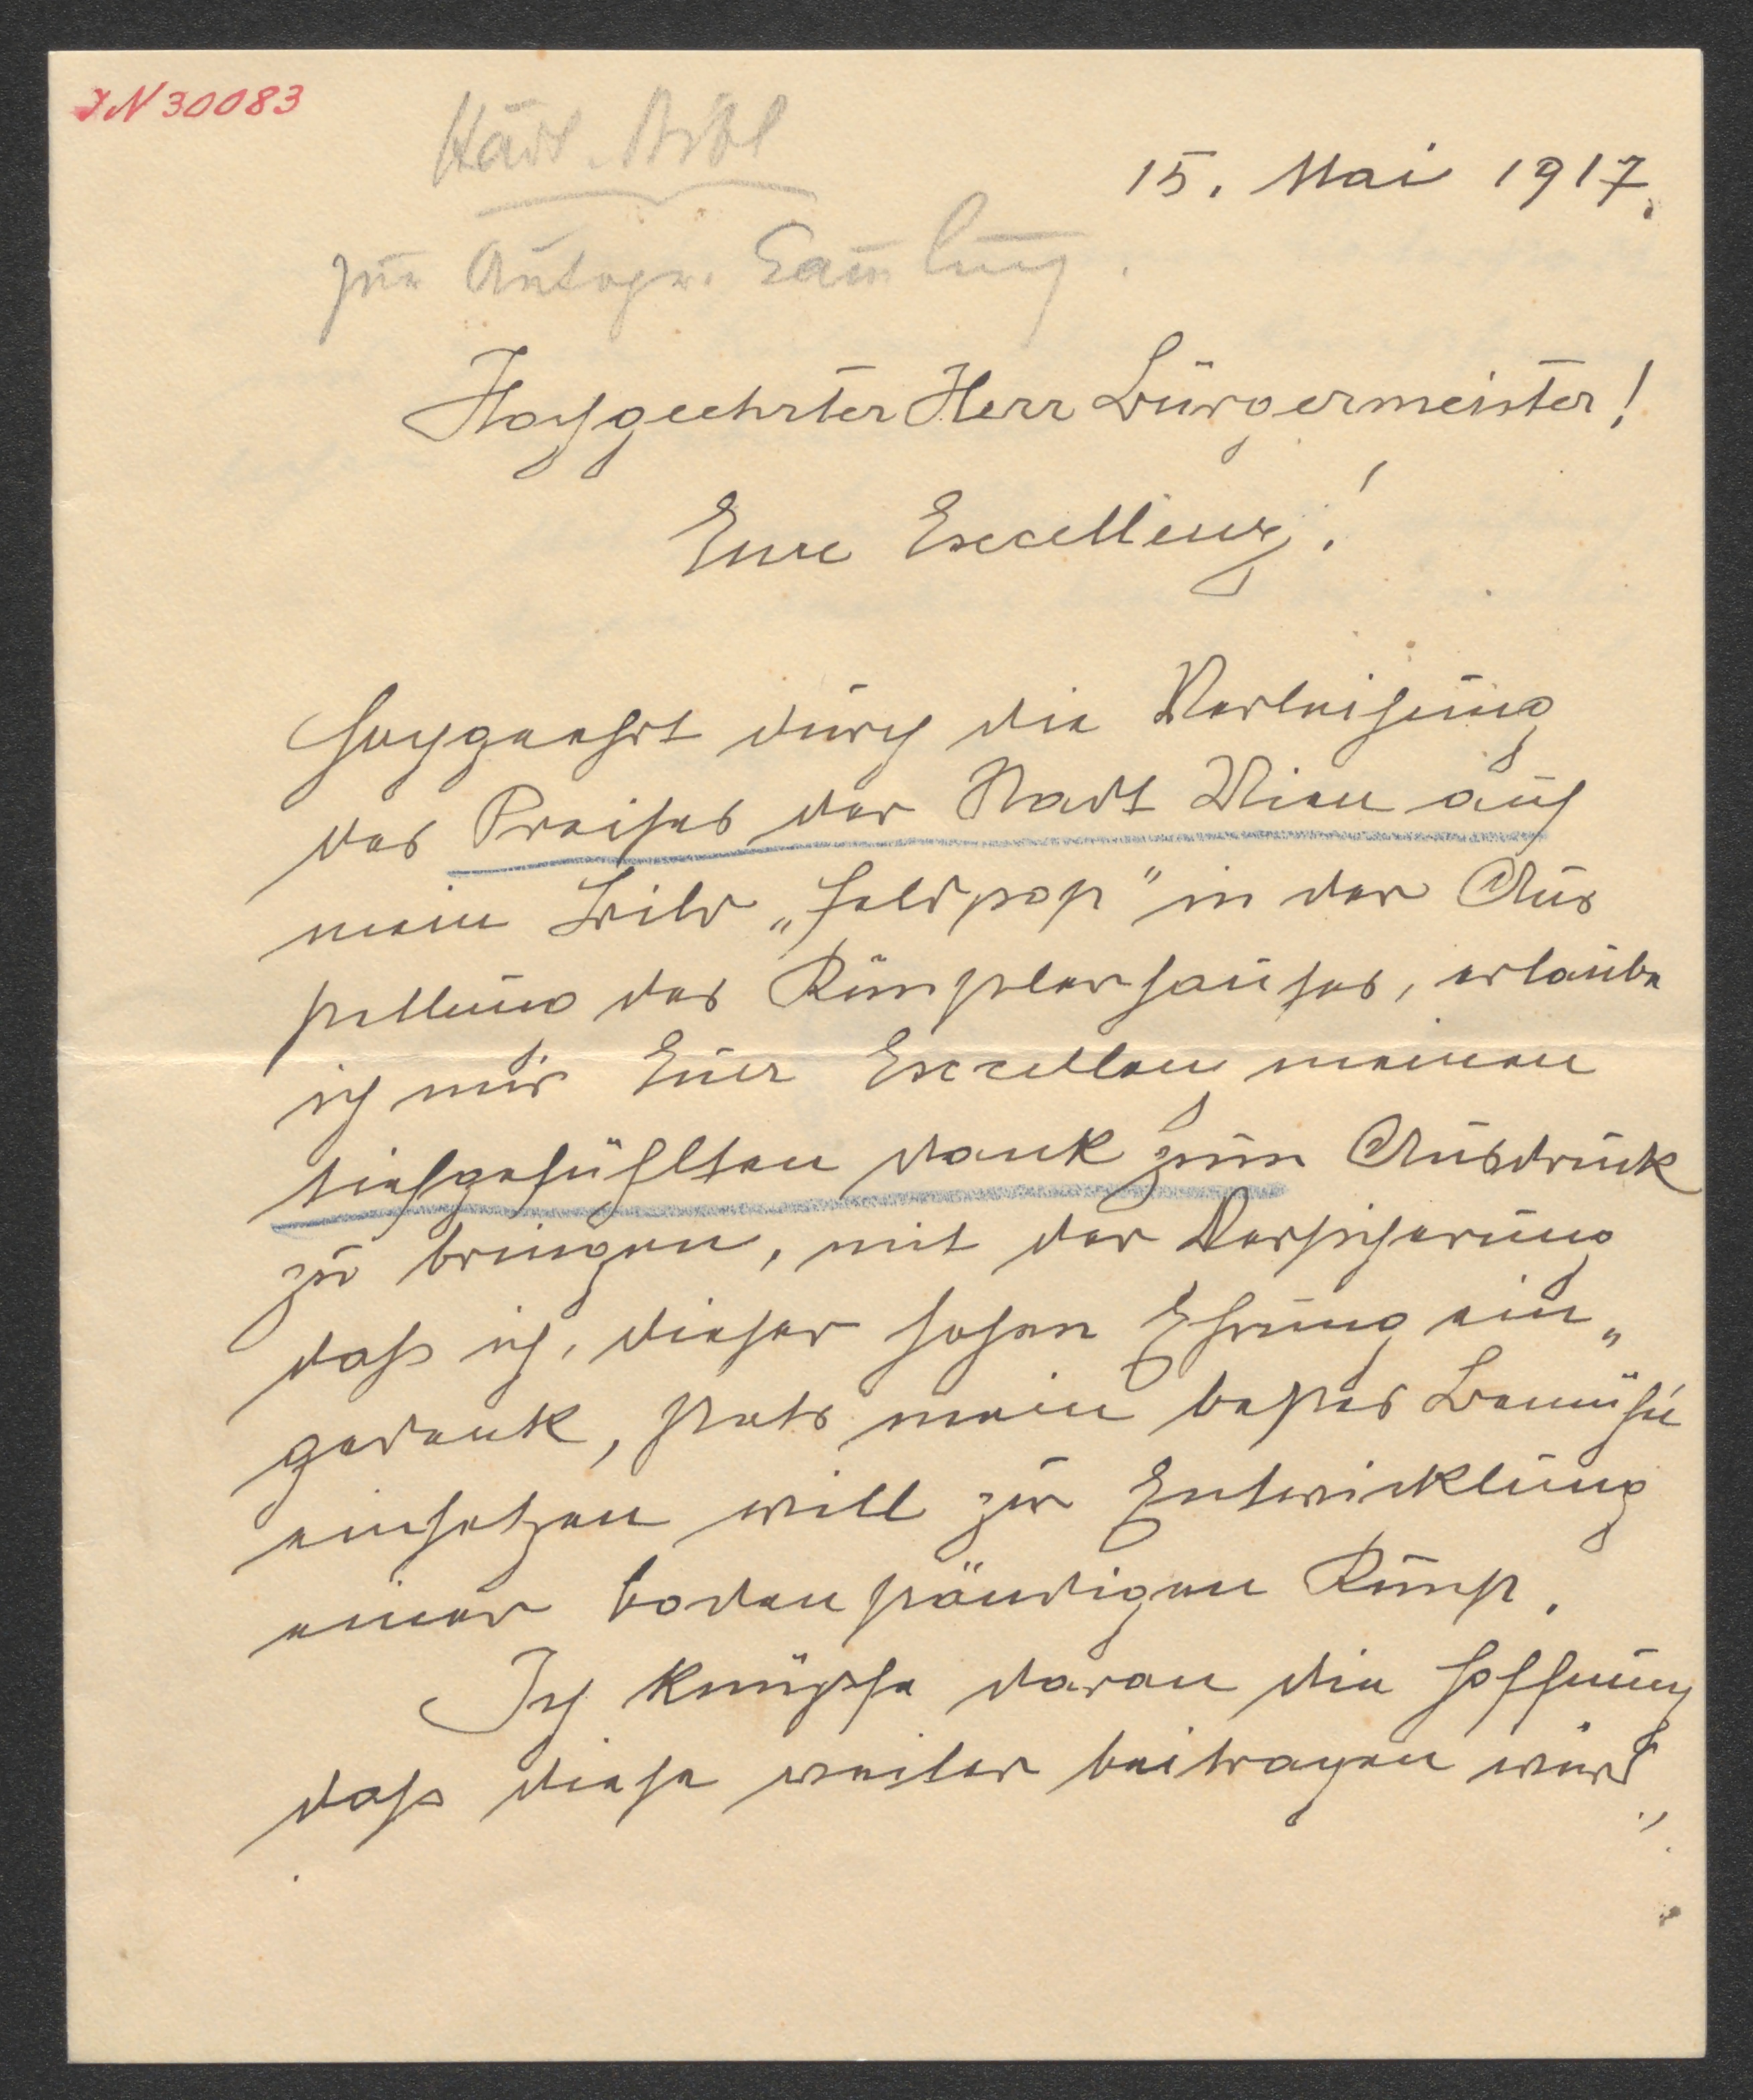 IN 30083
Städt. Bibl
zur Autogr. Sammlung.
15. Mai 1917.
Hochgeehrter Herr Bürgermeister!
Eure Excellenz!
hochgeehrt durch die Verleihung
des Preises der Stadt Wien auf
mein Bild „Feldpost" in der Aus
stellung des Künstlerhauses, erlaube
ich mir Euer Excellenz meinen
tiefgefühlten Dank zum Ausdruck
zu bringen, mit der Versicherung
daß ich, dieser hohen Ehrung ein„
gedenk, stets mein bestes Bemühn
einsetzen will zur Entwicklung
einer bodenständigen Kunst.
Ich knüpfe daran die Hoffnung
daß diese weiter beitragen wird,